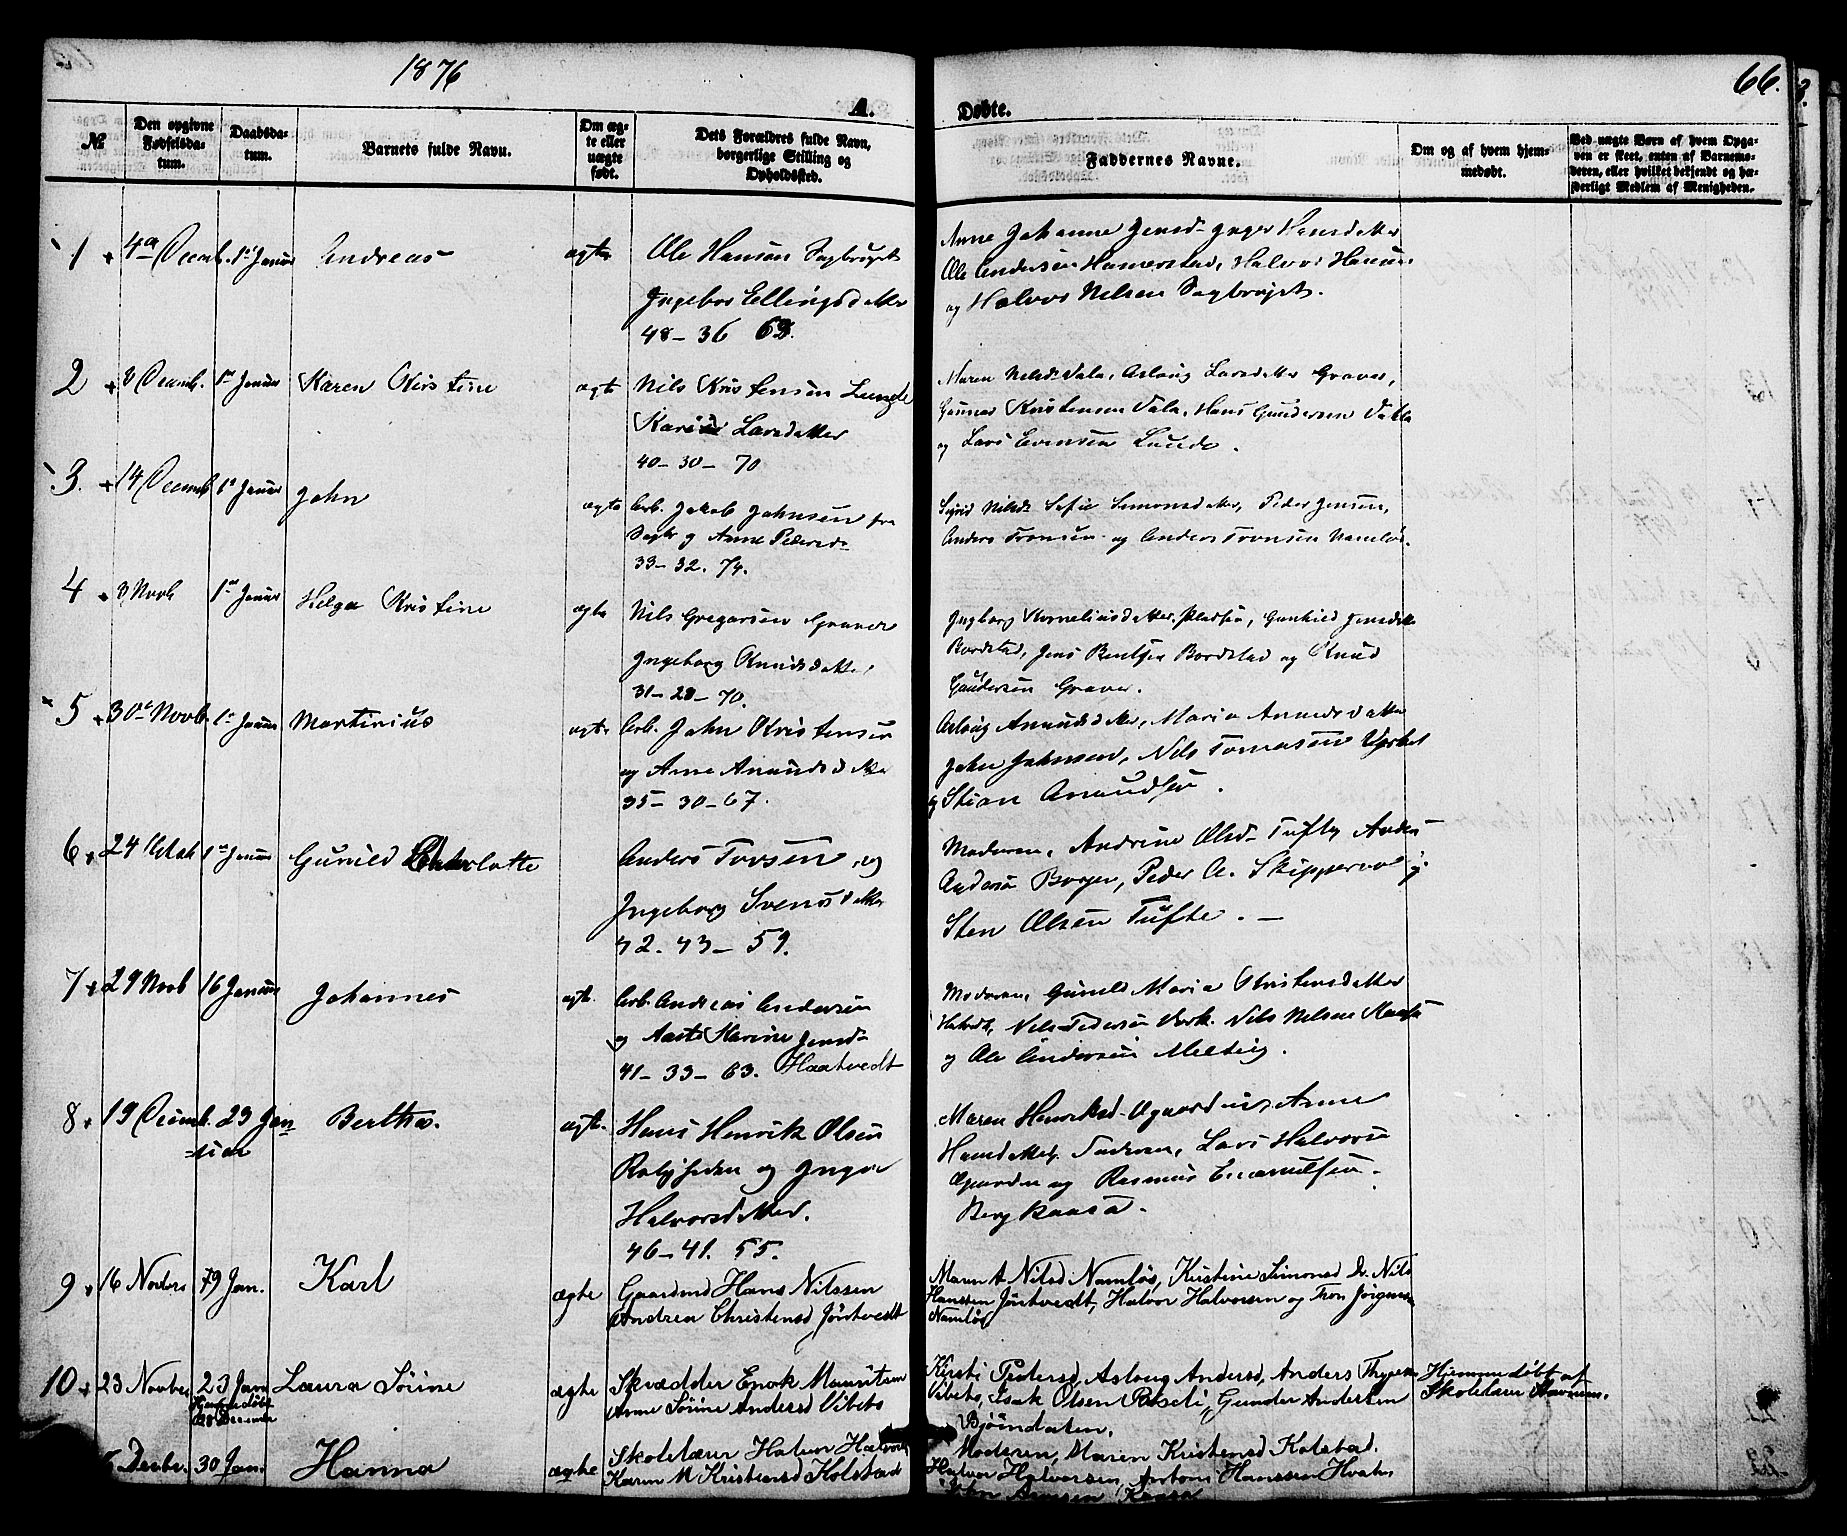 1876
66.
A. Døbte.
№
Den opgivne Fødselsdatum.
Daabsdatum.
Barnets fulde Navn.
Om ægte eller uægte født.
Dets Forældres fulde Navn, borgerlige Stilling og Opholdssted.
Faddernes Navne.
Om og af hvem hjemmedøbt.
Ved uægte Børn af hvem Opgaven er skeet, enten af Barnemoderen, eller hvilket bekjendt og hæderligt Medlem af Menigheden.
1 4de Decemb. 1ste Januar Andreas ægte Ole Hansen
Ingebor Ellingsdatter
48 - 36 63.
Anne Johanne Jensd. Inger Hansdatter
Ole Andersen Hamerstad, Halvor Hansen
og Halvor Nielsen
2 8 Decemb. 1ste Januar Karen Kirstine ægte Nils Kristensen Lunde
Larsdatter
40 - 30 - 70
Maren Nilsd. Vala, Aslaug Larsdatter Graver,
Gunnar Kristensen Vala, Hans Gundersen
og Lars Evensen Lunde.
3. 14 Decemb 1ste Januar John ægte Arb. Jakob Johnsen fra
og Anne Pedersd.
33 - 32. 74.
Sigrid Nilsd. Sofie Simonsdatter, Peder Jensen,
Anders Tronsen og Anders Tronsen Namløs.
4 8 Novb 1ste Januar Helga Kristine ægte Nils Gregarsen Graver
Ingeborg Knudsdatter
31 - 28 - 70.
Ingborg Korneliusdatter Pladsen, Gunhild Jensdatter
Bordstad, Jens Bentsen Bordstad og Knud
Gundersen Graver.
5 30te Novb. 1ste Januar Martinius ægte Arb. John Kristensen
og Anne Anundsdatter
35 - 30 - 67.
Aslaug Anundsdatter, Maria Anundsdatter
John Johnsen, Nils Tomasen
og Stian Anundsen.
6 24 1ste Januar Gunild Charlotte Anders Torsen og
Ingeborg Svensdatter
42. 43 - 59.
Moderen, Andrine Olsd. Tufte Anders
Andersen Borgen, Peder A. Skippervold og
Sten Olsen Tufte.
7 29 Novb 16 Januar Johannes ægte. Arb. Andreas Andersen
og Aaste Karine Jensd.
41 - 33 - 63. Haatvedt
Moderen, Gunild Maria Kristensdatter
Nils Pedersen Verk. Nils Nilsen
og Ole Andersen Melteig.
8 19 Decemb. 23 Januar Bertha. ægte. Hans Henrik Olsen
Roligheden og Inger
Halvorsdatter.
46 - 41. 55.
Maren Henriksd. Øgaarden, Anne
Hansdatter Lars Halvorsen
Øgaarden og Rasmus Emanuelsen
Bergkaasa.
9 16 Novbr 19 Jan. Karl ægte Gaardmd Hans Nilssen
Andrea Christensd Jøntvedt
Maren A. Nilsd Namløs, Kirstine Simonsd Dr. Nils
Hanssen Jøntvedt, Halvor Halvorsen og Tron Jørgensen
Namløs
10 23 Novber 23 Jan Laura Sørine ægte Skrædder Enok Mauritsen
Hjemmedøbt
28 December
Anne Sørine Andersd Vibeto
Kirsti Pedersd, Aslaug Andersd, Anders Thygesen
Vibeto, Isak Olsen Gunder Andersen
Bjøndalen.
Hjemmedøbt af
Skolelærer
Decbr. 30 Jan. Hanna ægte Skolelærer Halvor Halvors
Karen M Kristensd Kolstad
Moderen, Maren Kristensd Kolstad.
Halvor Halvorsen, Anton Hanssen